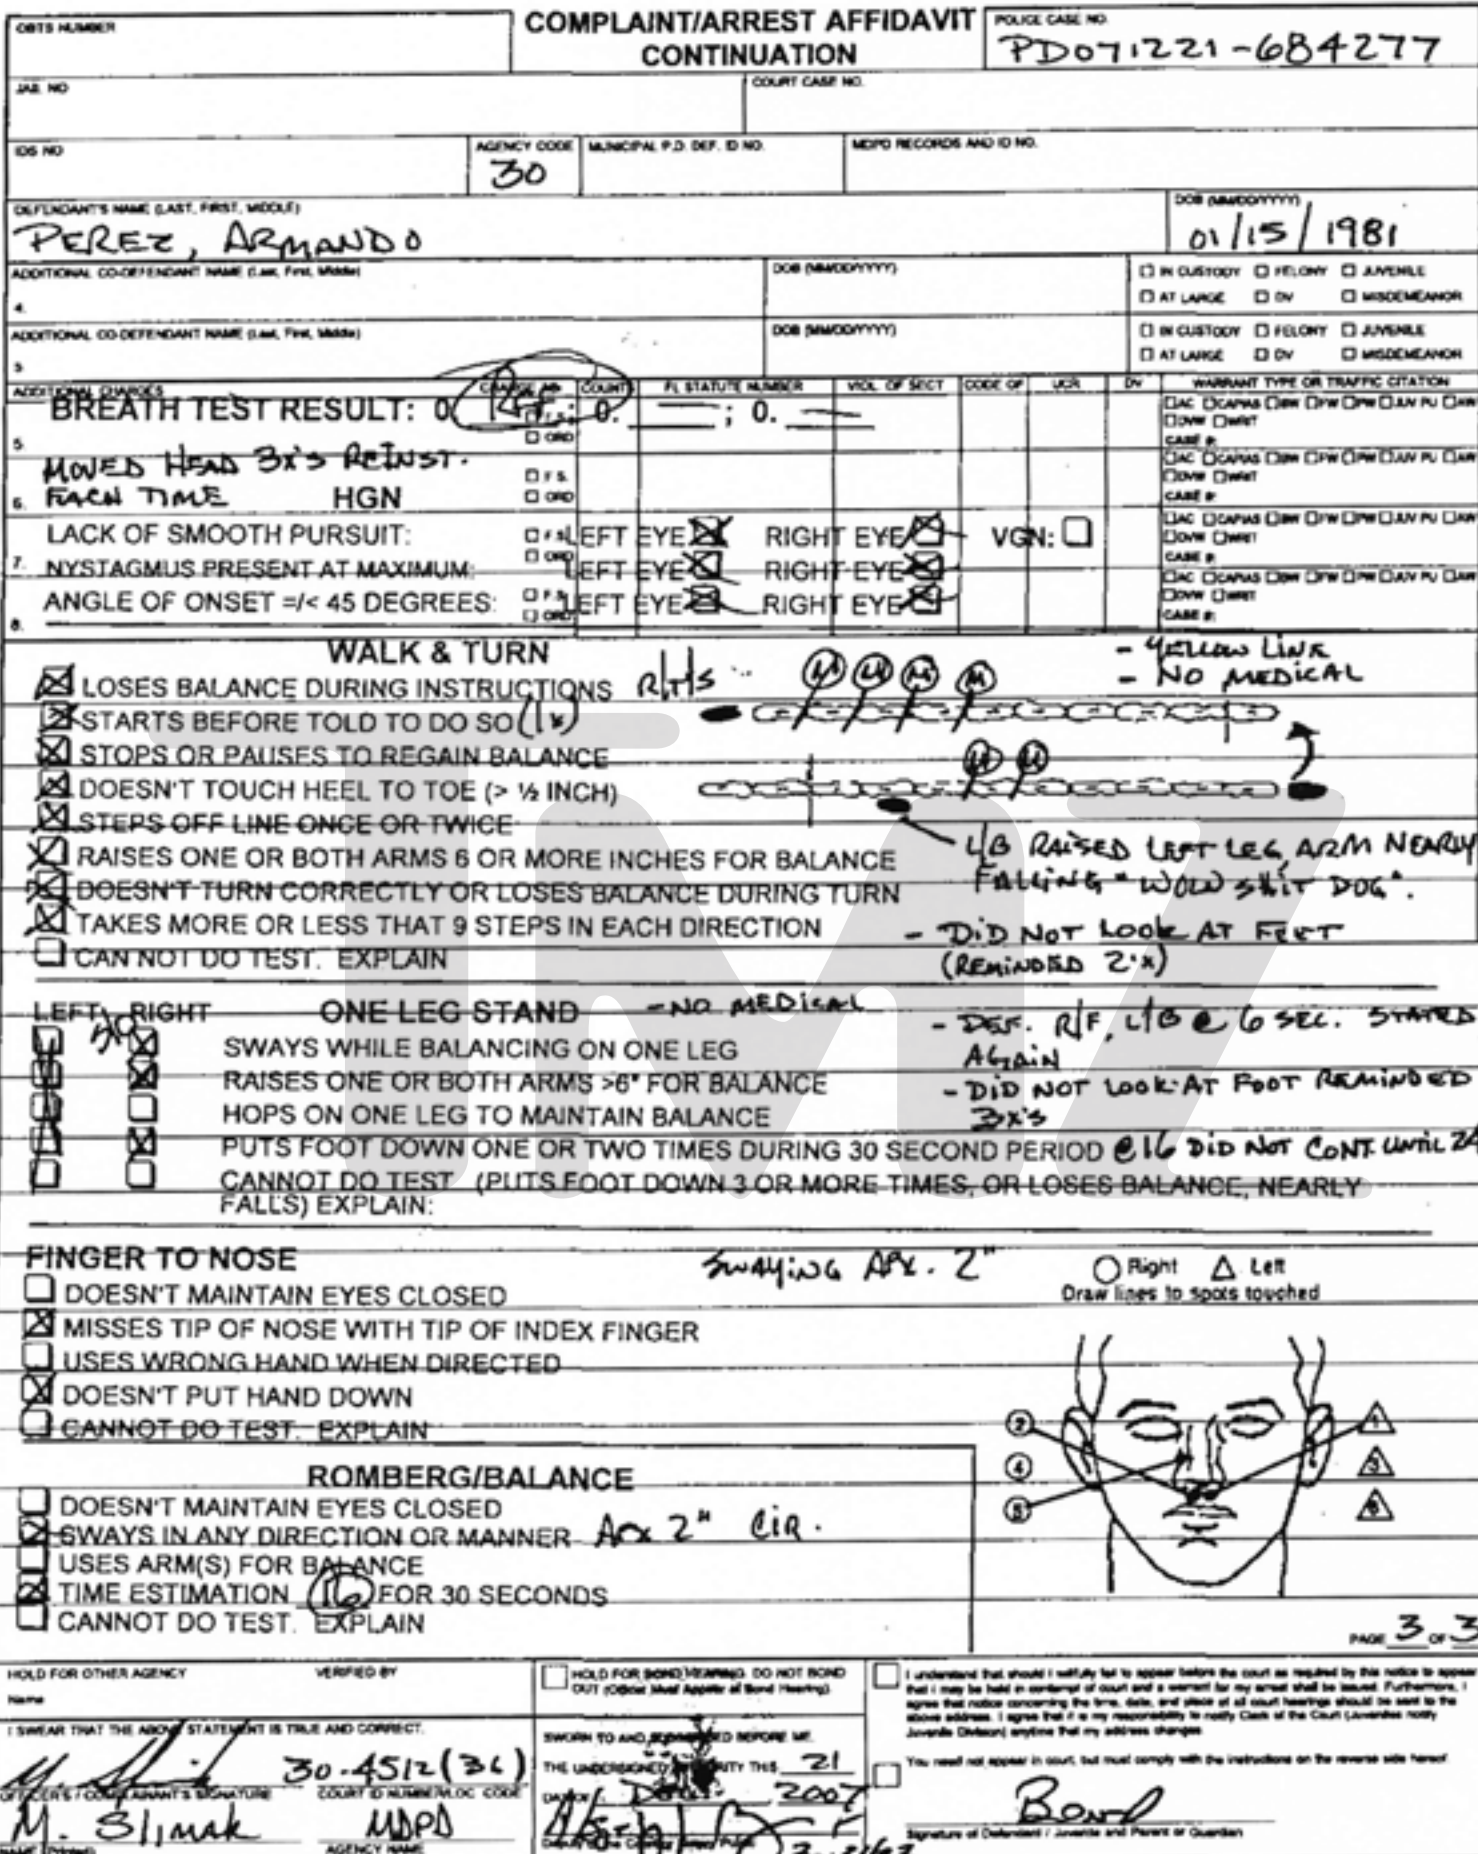 OBTS NUMBER
COMPLAINT/ARREST AFFIDAVIT
CONTINUATION
POLICE CASE NO.
PD071221-684277
JAIL NO
COURT CASE NO.
IDS NO
AGENCY CODE
30
MUNICIPAL P.D. DEF. ID NO.
MDPD RECORDS AND ID NO.
DEFENDANT'S NAME (LAST, FIRST, MIDDLE)
PEREZ, ARMANDO
DOB (MM/DD/YYYY)
01/15/1981
ADDITIONAL CO-DEFENDANT NAME (Last, First, Middle)
DOB (MM/DD/YYYY)
IN CUSTODY FELONY JUVENILE
4.
AT LARGE DV MISDEMEANOR
ADDITIONAL CO-DEFENDANT NAME (Last, First, Middle)
DOB (MM/DD/YYYY)
IN CUSTODY FELONY JUVENILE
AT LARGE DV MISDEMEANOR
ADDITIONAL CHARGES CHARGE AS: COUNTS FL STATUTE NUMBER VIOL. OF SECT CODE OF UCR DV WARRANT TYPE OR TRAFFIC CITATION
BREATH TEST RESULT: 0. ; 0. ; 0.
5. ORD CASE #:
MOVED HEAD 3X'S REINST.
F.S.
6. EACH TIME HGN ORD CASE #:
LACK OF SMOOTH PURSUIT: LEFT EYE RIGHT EYE VGN:
7. NYSTAGMUS PRESENT AT MAXIMUM: LEFT EYE RIGHT EYE
ANGLE OF ONSET =/< 45 DEGREES: LEFT EYE RIGHT EYE
8.
WALK & TURN
- YELLOW LINE
- NO MEDICAL
LOSES BALANCE DURING INSTRUCTIONS R/T/S
STARTS BEFORE TOLD TO DO SO (1x)
STOPS OR PAUSES TO REGAIN BALANCE
DOESN'T TOUCH HEEL TO TOE (> ½ INCH)
STEPS OFF LINE ONCE OR TWICE
RAISES ONE OR BOTH ARMS 6 OR MORE INCHES FOR BALANCE
L/B RAISED LEFT LEG, ARM NEARLY
FALLING "WOLD SHIT DOG".
DOESN'T TURN CORRECTLY OR LOSES BALANCE DURING TURN
TAKES MORE OR LESS THAT 9 STEPS IN EACH DIRECTION
- DID NOT LOOK AT FEET
(REMINDED 2'x)
CAN NOT DO TEST. EXPLAIN
LEFT RIGHT ONE LEG STAND - NO MEDICAL
- DEF. R/F, L/B @ 6 SEC. STARTED
AGAIN
SWAYS WHILE BALANCING ON ONE LEG
RAISES ONE OR BOTH ARMS >6" FOR BALANCE
- DID NOT LOOK AT FOOT REMINDED
3x's
HOPS ON ONE LEG TO MAINTAIN BALANCE
PUTS FOOT DOWN ONE OR TWO TIMES DURING 30 SECOND PERIOD @16 DID NOT CONT. UNTIL
CANNOT DO TEST (PUTS FOOT DOWN 3 OR MORE TIMES, OR LOSES BALANCE, NEARLY
FALLS) EXPLAIN:
FINGER TO NOSE
SWAYING APX. 2"
Right Left
Draw lines to spots touched
DOESN'T MAINTAIN EYES CLOSED
MISSES TIP OF NOSE WITH TIP OF INDEX FINGER
USES WRONG HAND WHEN DIRECTED
DOESN'T PUT HAND DOWN
CANNOT DO TEST. EXPLAIN
2 1
4 3
5 6
ROMBERG/BALANCE
DOESN'T MAINTAIN EYES CLOSED
SWAYS IN ANY DIRECTION OR MANNER Apx 2" CIR.
USES ARM(S) FOR BALANCE
TIME ESTIMATION 16 FOR 30 SECONDS
CANNOT DO TEST. EXPLAIN
PAGE 3 OF 3
HOLD FOR OTHER AGENCY VERIFIED BY
Name
HOLD FOR BOND HEARING. DO NOT BOND
OUT (Officer Must Appear at Bond Hearing).
I understand that should I willfully fail to appear before the court as required by this notice to appear
that I may be held in contempt of court and a warrant for my arrest shall be issued. Furthermore, I
agree that notice concerning the time, date, and place of all court hearings should be sent to the
above address. I agree that it is my responsibility to notify Clerk of the Court (Juveniles notify
Juvenile Division) anytime that my address changes
You need not appear in court, but must comply with the instructions on the reverse side hereof.
I SWEAR THAT THE ABOVE STATEMENT IS TRUE AND CORRECT.
30-4512(36)
OFFICER'S / COMPLAINANT'S SIGNATURE COURT ID NUMBER/LOC CODE
M. Slimak MDPD
NAME (Printed) AGENCY NAME
SWORN TO AND SUBSCRIBED BEFORE ME,
THE UNDERSIGNED AUTHORITY THIS 21
DAY OF 2007
Bond
Signature of Defendant / Juvenile and Parent or Guardian
TMZ